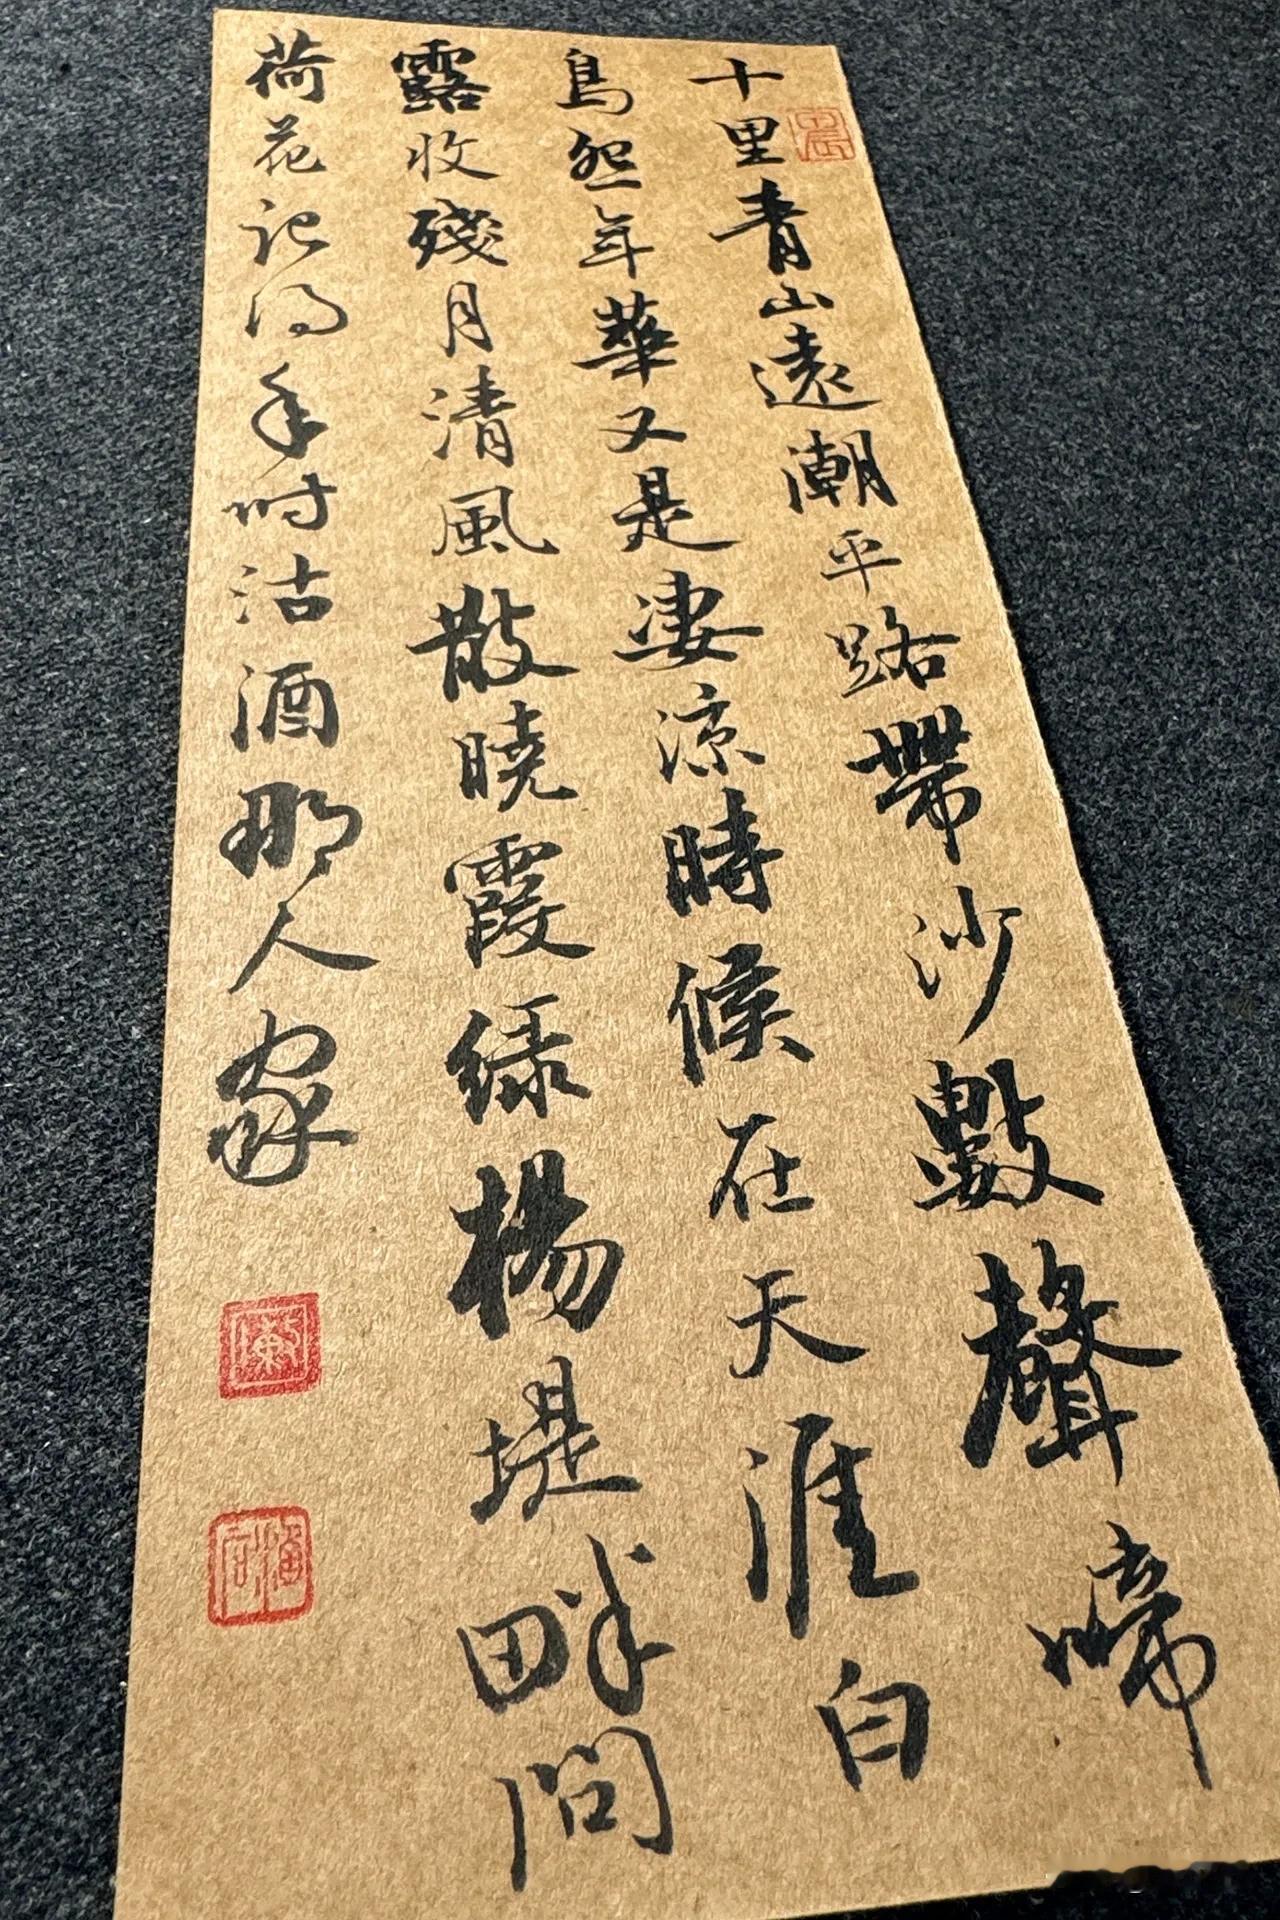 十里青山遠潮平路帶沙數聲啼
鳥怨年華又是淒涼時候在天涯白
露收殘月清風散曉霞綠楊堤畔問
荷花記得年時沽酒那人家